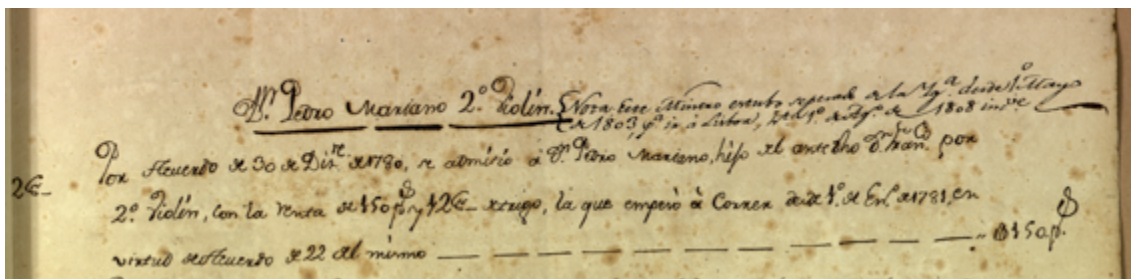 Dn. Pedro Mariano 2º. Violín. {Nota Este Músico estubo separado de la Yga. desde 1º. Mayo
de 1803, pª. ir à Lisboa, hta. 1º. de Agto. de 1808 incve.
Por Acuerdo de 30 de Dizre. de 1780, se admitió à Dn. Pedro Mariano, hijo del antecho. Dn. Franco. por
2E_ 2º. Violín, con la renta de 150 ps. y 12E_ de trigo, la que empezó à Correr desde 1º. de Enº. de 1781, en
virtud de Acuerdo de 22 del mismo 150 p.